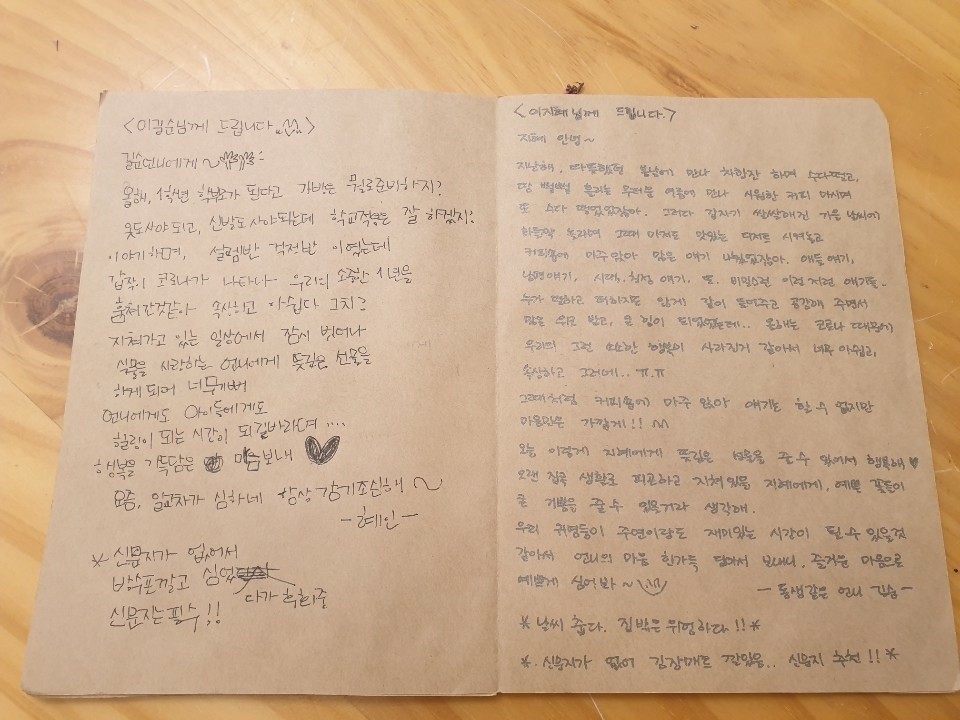 <이길순님께 드립니다.^^>
길순언니에게~
올해, 1학년 학부모가 된다고 가방은 뭘로준비하지?
옷도사야 되고, 신발도 사야된는데 학교적응은 잘 하겠지?
이야기하며, 설렘반 걱정반 이였는데
갑작이 코로나가 나타나 우리의 소중한 1년을
훔쳐간것같아 속상하고 아쉽다 그치?
지쳐가고 있는 일상에서 잠시 벗어나
식물을 사랑하는 언니에게 뜻깊은 선물을
하게 되어 너무기뻐
언니에게도 아이들에게도
힐링이 되는 시간이 되길바라며 ....
행복을 가득담은 마음보내 ♥
요즘, 일교차가 심하네 항상 감기조심해~
-혜인-
* 신문지가 없어서
방수포깔고 심었
다가 휘휘줄
신문지는필수!!
<이지혜님께 드립니다.>
지혜 안녕~
지난해, 따뜻했던 봄날에 만나 차한잔 하며 수다떨고,
땀 뻘뻘 흘리는 무더운 여름에 만나 시원한 커피 마시며
또 수다 떨었었잖아. 그러다 갑자기 쌀쌀해진 가을 날씨에
화들짝 놀라며 그때 마저도 맛있는 디저트 시켜놓고
커피숍에 마주 앉아 많은 얘기 나눴었잖아. 애들얘기,
남편얘기, 시댁.친정 얘기. 또. 비밀스런 이런저런 얘기들-
누가 떨하고 더하지도 않게 같이 들어주고 공감해 주면서
많은 위로 받고, 큰 힘이 되었었는데.. 올해는 코로나 때문에
우리의 그런 소소한 행복이 사라진거 같아서 너무 아쉽고,
속상하고 그러네.. ㅠ.ㅠ
그때처럼 커피숍에 마주 앉아 얘기는 할 수 없지만
마음만은 가깝게!! ^^
오늘 이렇게 지혜에게 뜻깊은 선물을 줄 수 있어서 행복해♥
오랜 집콕 생활로 피곤하고 지쳐있을 지혜에게, 예쁜 꽃들이
큰 기쁨을 줄 수 있을거라 생각해.
우리 귀염둥이 주연이랑도 재미있는 시간이 될 수 있을것
같아서 언니의 마음 한가득 담아서 보내니, 즐거운 마음으로
예쁘게 심어봐~ ^^
- 동생같은 언니 길순 -
* 날씨 춥다. 집밖은 위험하다!! *
* 신문지가 없어 김장매트 깔았음.. 신문지 추천!! *